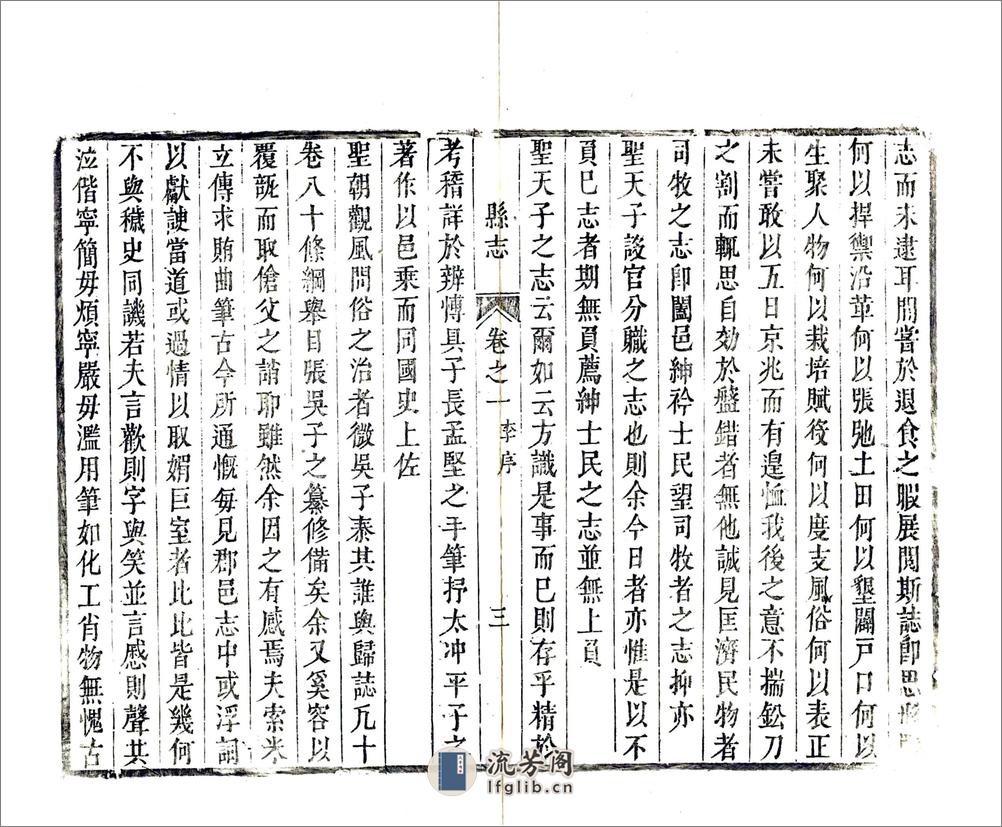 志而未逮耳間嘗於退食之暇展閱斯誌卽思形勝
何以捍禦沿革何以張弛土田何以墾闢戸口何以
生聚人物何以栽培賦役何以度支風俗何以表正
未嘗敢以五日京兆而有遑恤我後之意不揣鈆刀
之割而輒思自効於盤錯者無他誠見匡濟民物者
司牧之志卽闔邑紳衿士民望司牧者之志抑亦
聖天子設官分職之志也則余今日者亦惟是以不
負巳志者期無負薦紳士民之志並無上負
聖天子之志云爾如云方識是事而巳則存乎精於
縣志
卷之一
李序
三
考稽詳於辨慱具子長孟堅之手筆抒太冲平子之
著作以邑乘而同國史上佐
聖朝觀風問俗之治者微吳子泰其誰與歸誌凡十
卷八十條綱舉目張吳子之纂修備矣余又奚容以
覆瓿而取傖父之誚耶雖然余因之有感焉夫索米
立傳求賄曲筆古今所通慨每見郡邑志中或浮詞
以獻諛當道或過情以取媚巨室者比比皆是幾何
不與穢史同譏若夫言歡則字與笑並言慼則聲其
泣偕寧簡毋煩寧嚴毋濫用筆如化工肖物無愧古
流芳阁
lfglib.cn